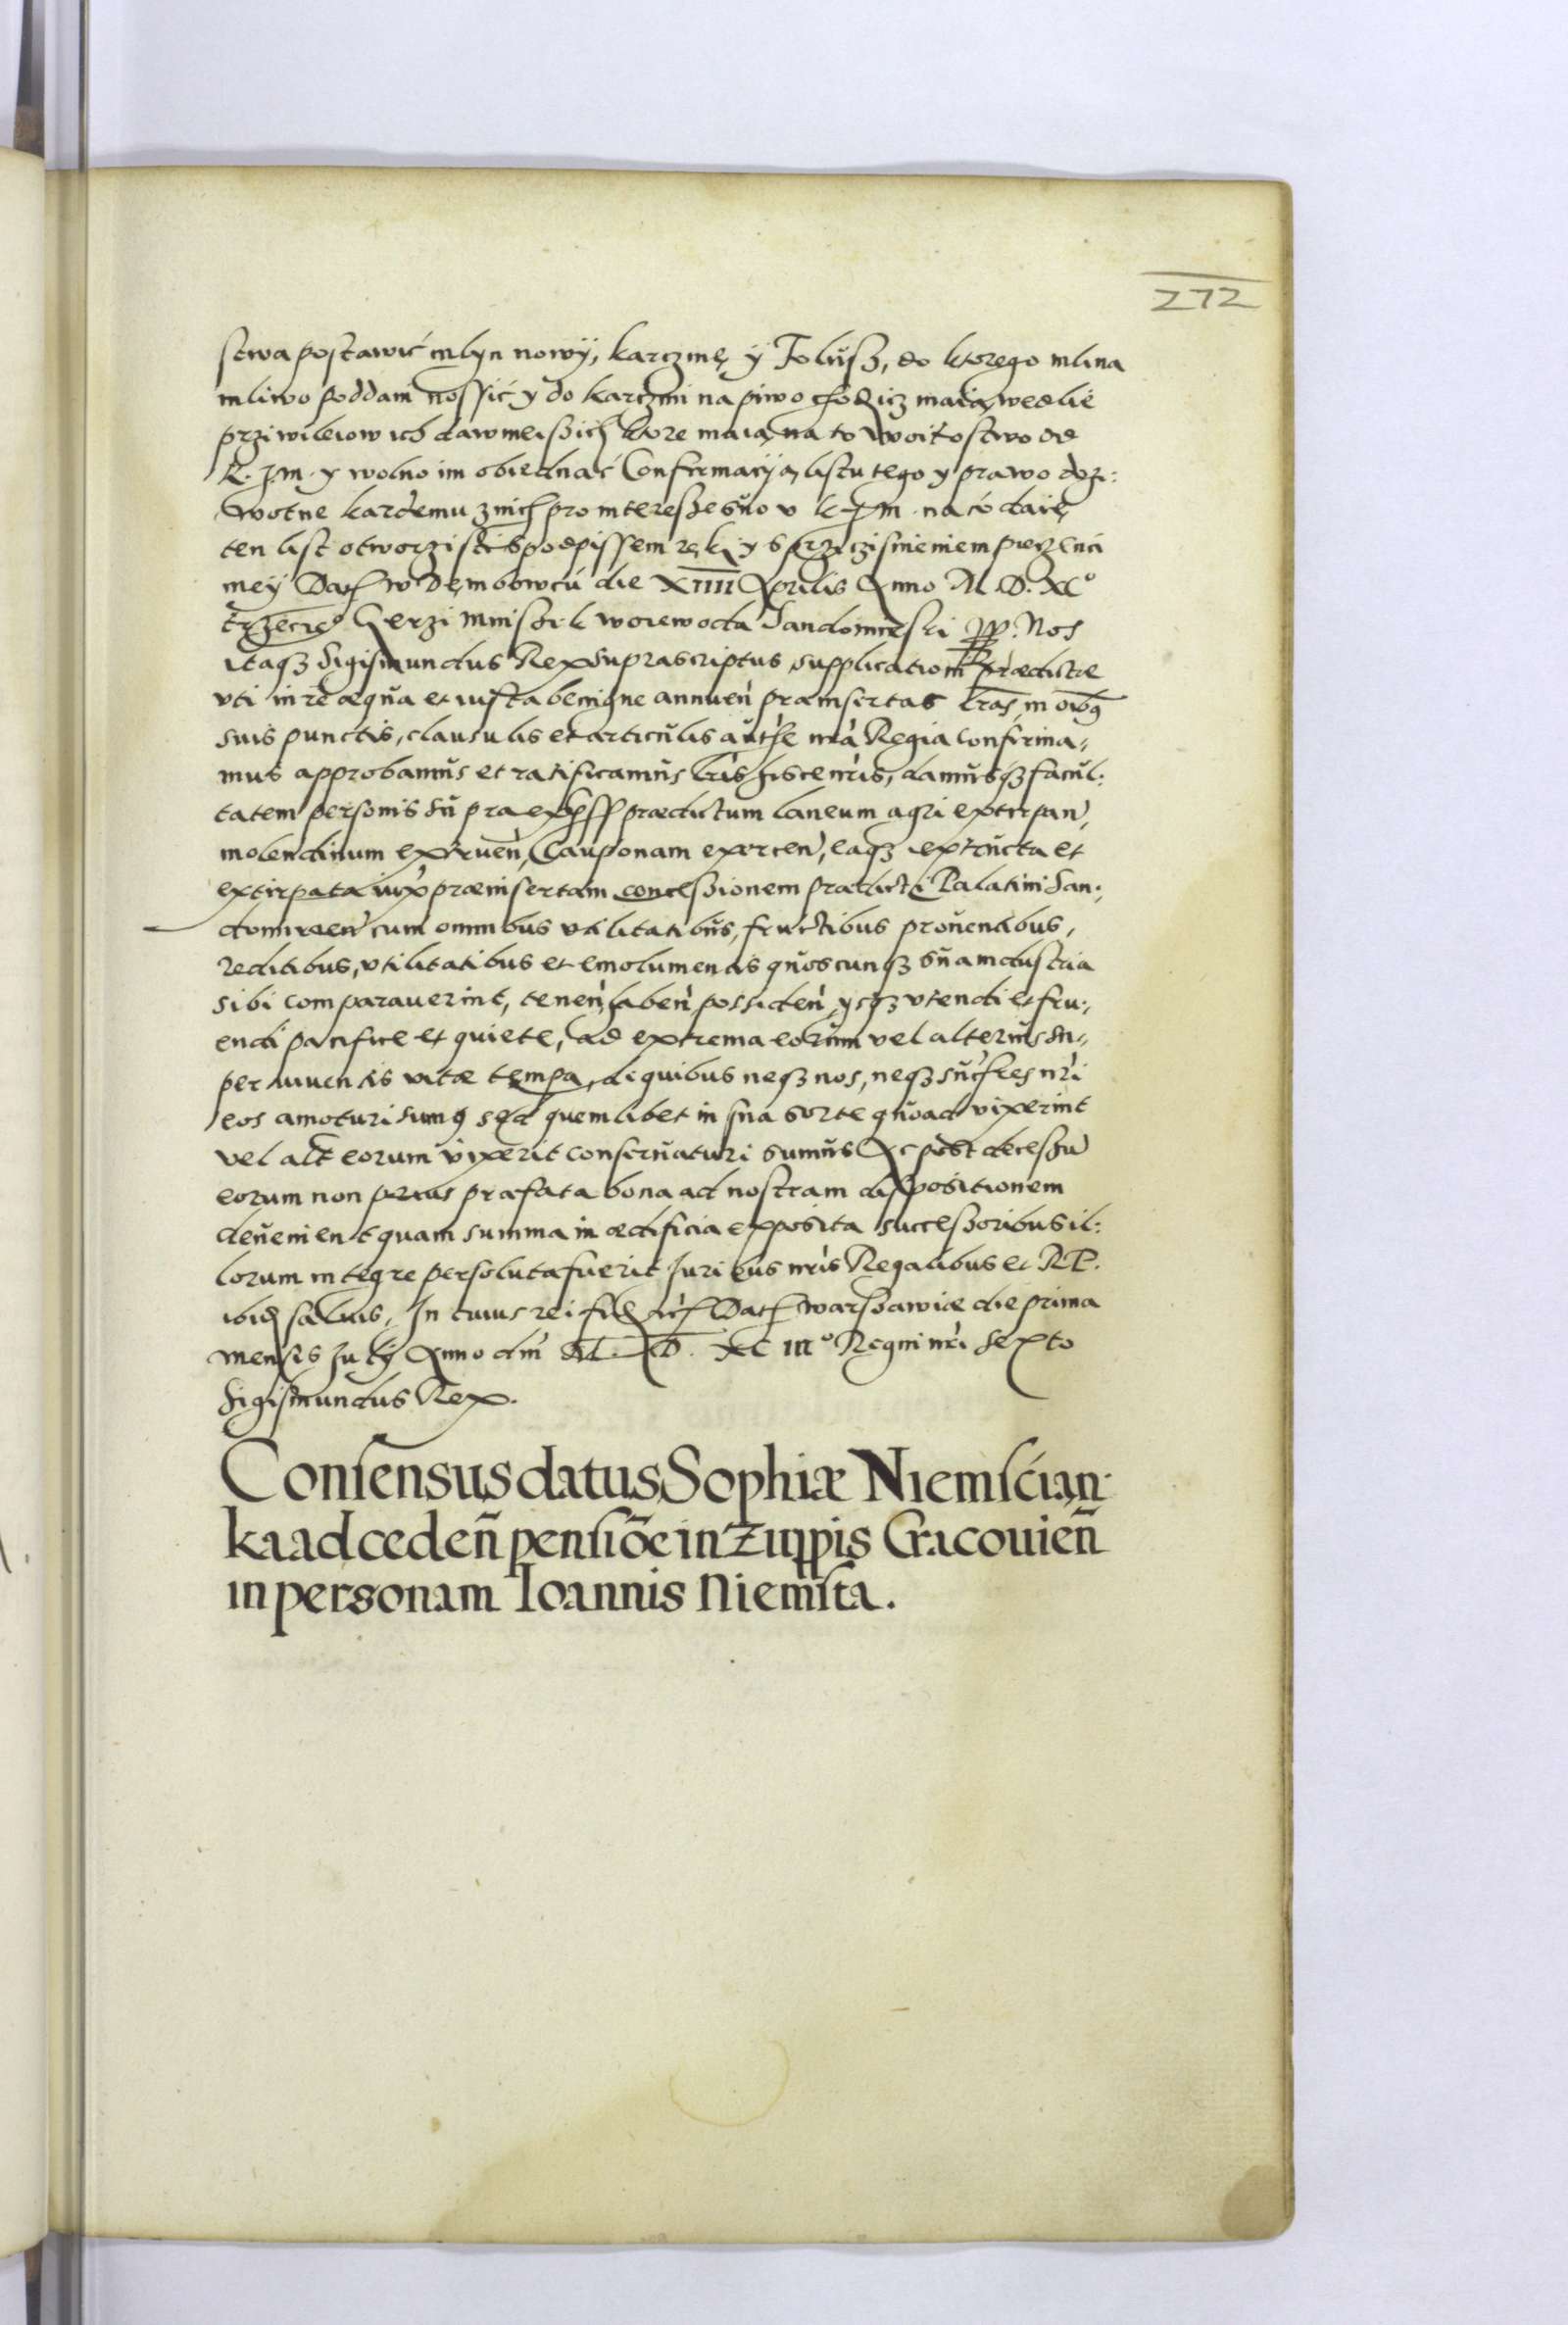 272
stwa postawić mlyn nowÿ, karczmę ÿ Folusz, do ktorego mlina
mliwo poddani nossić y do karczmi na piwo chodzicz maią, wedlie
prziwileiow ich dawnieiszich ktore maią na to Woitostwo od
K. Jm. y wolno im obiednać Confirmacyią listu tego y prawo dozi:
wotne kazdemu z nich pro interesse suo v K Jm. na co daię
ten list otworzisti s podpissem ręki y s prziczisnieniem pieczenci
meÿ Dat w Dembowcu die XIIII Aprilis Anno M. D. XC°
trzeciego Gerzi Mniszek woiewoda Sandomirski pp. Nos
itaq3 Sigismundus Rex suprascriptus supplicationi praedictae
vti in re aequa et iusta benigne annuen praeinsertas lras in oibq
suis punctis, clausulis et articulis authte nra Regia confirma,
mus approbamus et ratificamus lris hisce nris, damusq3 facul:
tatem personis supra expss praedictum laneum agri extirpan,
molendinum extruen, Cauponam exercen, eaq3 extructa et
extirpata iuxta praeinsertam concessionem praedicti Palatini San:
domirien cum omnibus vtilitatibus, fructibus prouentibus,
reditibus, vtilitatibus et emolumentis quoscunq3 sua industria
sibi comparauerint, tenen, haben possiden, ysq3 vtendi et fru:
endi pacifice et quiete, ad extrema eorum vel alterius su,
peruiuentis vitae tempa, de quibus neq3 nos, neq3 succhres nri
eos amoturi sumq sed quemlibet in sua sorte quoad vixerint
vel alt eorum vixerit conseruaturi sumus Ac post decessu
eorum non prius praefata bona ad nostram dispositionem
deuenient quam summa in aedificia exposita successoribus il:
lorum integre persoluta fuerit Juribus nris Regalibus et RP.
ibid saluis. In cuius rei fid etc Dat Warszawiae die prima
mensis July Anno dni M. D. XC III° Regni nri sexto
Sigismundus Rex.
Consensus datus Sophiæ Niemścian:
ka ad ceden pensioe in Zuppis Cracouien
in personam Ioannis Niemsta.